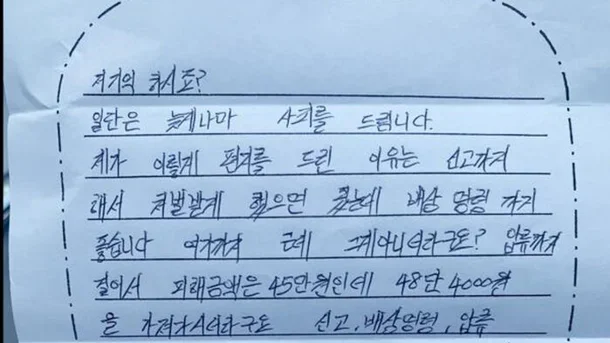 저기억 하시죠?
일단은 늦게나마 사과를 드립니다.
제가 이렇게 편지를 드린 이유는 신고까지
해서 처벌받게 했으면 됐는데 배상 명령 까지
좋습니다 여기까지 근데 그게아니더라구요? 압류까지
걸어서 피해금액은 45만원인데 48만 4000원
을 가져가시더라구요 신고, 배상명령, 압류